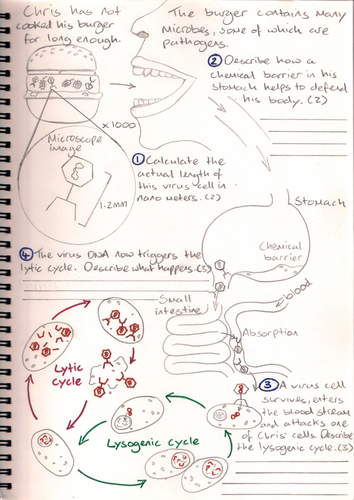 Chris has not
cooked his burger
for long enough.
The burger contains many
microbes, some of which are
pathogens.
② Describe how a
chemical barrier in his
stomach helps to defend
his body. (2)
x1000
Microscope
image
1.2mm
① Calculate the
actual length of
this virus cell in
nano meters. (2)
Stomach
Chemical
barrier
④ The virus DNA now triggers the
lytic cycle. Describe what happens. (3)
Small
intestine
blood
Absorption
Lytic
cycle
Lysogenic cycle
③ A virus cell
survives, enters
the blood stream
and attacks one
of Chris' cells. Describe
the lysogenic cycle. (3)